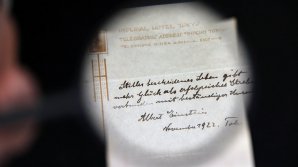 IMPERIAL HOTEL, TOKYO
TELEGRAPHIC ADDRESS "IMPHO TOKYO"
Stilles bescheidenes Leben gibt
mehr Glück als erfolgreiches
verbunden mit beständiger
Albert Einstein
November 1922.